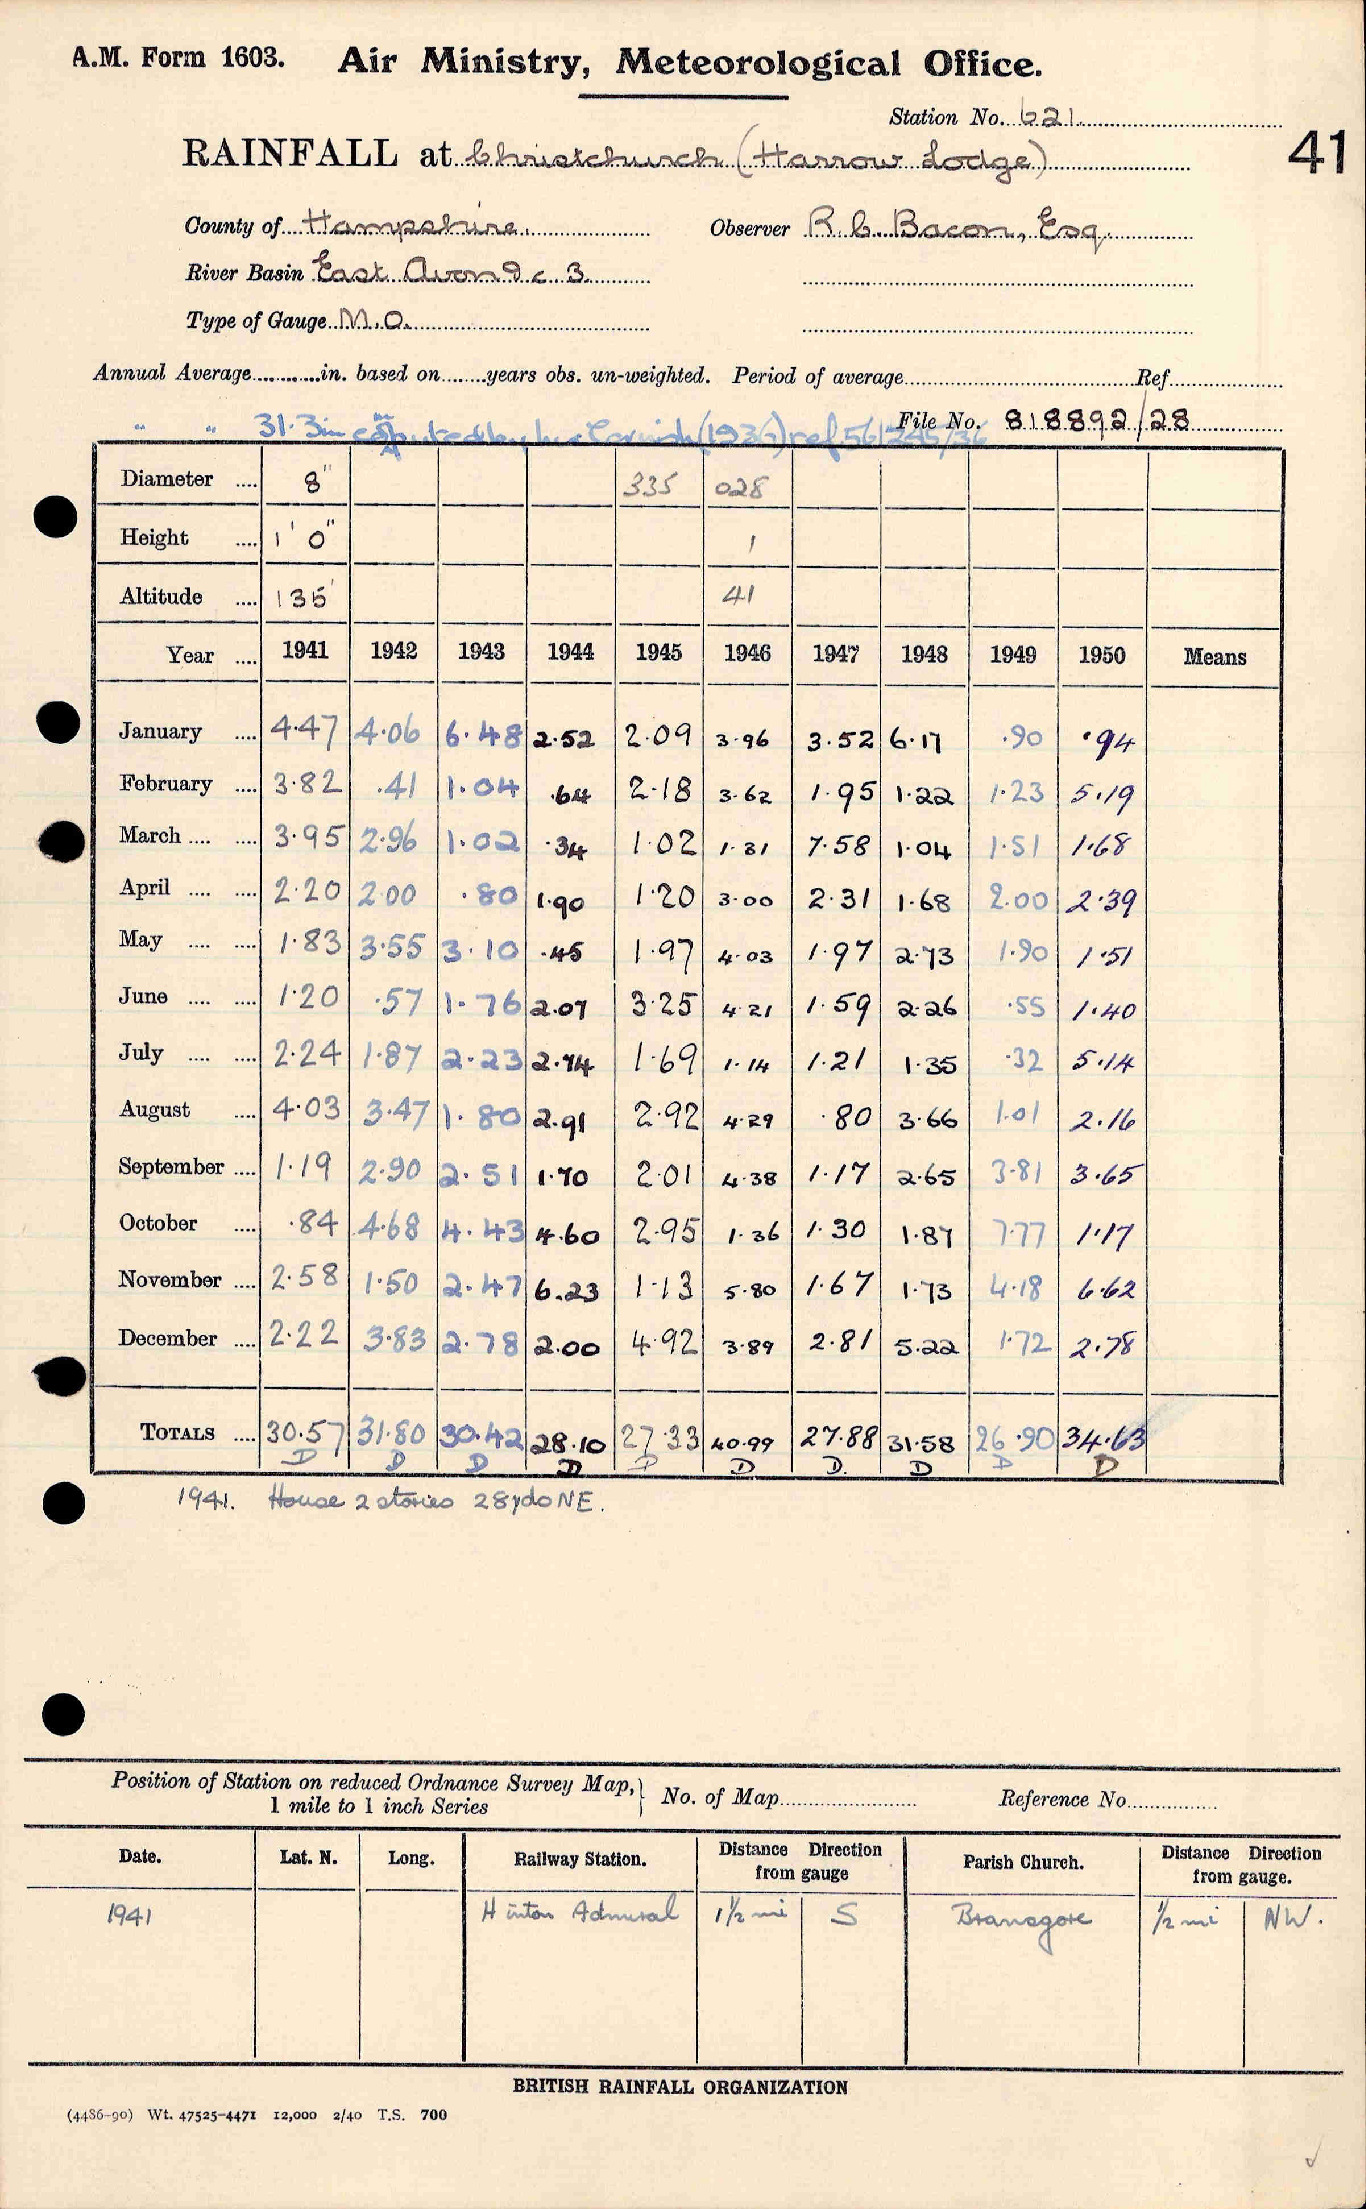 A.M. Form 1603. Air Ministry, Meteorological Office.
Station No. 621.
41
RAINFALL at Christchurch (Harrow Lodge)
County of Hampshire. Observer R. C. Bacon, Esq.
River Basin East Avon &c. 3.
Type of Gauge M.O.
Annual Average in. based on years obs. un-weighted. Period of average Ref
" " 31.3in computed by (1936) ref. 561245/36 File No. 818892/28
Diameter 8" 335 028
Height 1' 0" 1
Altitude 135' 41
Year 1941 1942 1943 1944 1945 1946 1947 1948 1949 1950 Means
January 4.47 4.06 6.48 2.52 2.09 3.96 3.52 6.17 .90 .94
February 3.82 .41 1.04 .64 2.18 3.62 1.95 1.22 1.23 5.19
March 3.95 2.96 1.02 .34 1.02 1.31 7.58 1.04 1.51 1.68
April 2.20 2.00 .80 1.90 1.20 3.00 2.31 1.68 2.00 2.39
May 1.83 3.55 3.10 .45 1.97 4.03 1.97 2.73 1.90 1.51
June 1.20 .57 1.76 2.07 3.25 4.21 1.59 2.26 .55 1.40
July 2.24 1.87 2.23 2.74 1.69 1.14 1.21 1.35 .32 5.14
August 4.03 3.47 1.80 2.91 2.92 4.29 .80 3.66 1.01 2.16
September 1.19 2.90 2.51 1.70 2.01 4.38 1.17 2.65 3.81 3.65
October .84 4.68 4.43 4.60 2.95 1.36 1.30 1.87 7.77 1.17
November 2.58 1.50 2.47 6.23 1.13 5.80 1.67 1.73 4.18 6.62
December 2.22 3.83 2.78 2.00 4.92 3.89 2.81 5.22 1.72 2.78
TOTALS 30.57 31.80 30.42 28.10 27.33 40.99 27.88 31.58 26.90 34.63
D D D D D D D. D D D
1941. House 2 stories 28yds NE.
Position of Station on reduced Ordnance Survey Map, 1 mile to 1 inch Series } No. of Map Reference No.
Date. Lat. N. Long. Railway Station. Distance Direction from gauge Parish Church. Distance Direction from gauge.
1941 Hinton Admiral 1½ mi S Bransgore ½ mi NW.
BRITISH RAINFALL ORGANIZATION
(4486-90) Wt. 47525-4471 12,000 2/40 T.S. 700